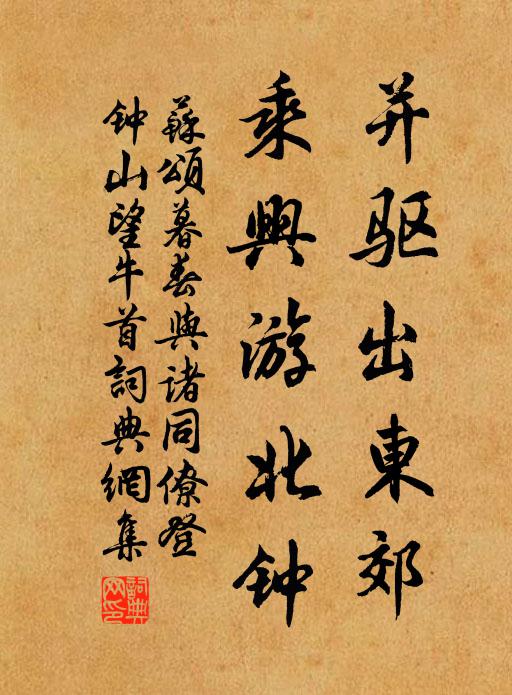 并驱出東郊
乘興游北钟
蘇頌暮春與诸同僚登
钟山望牛首詞典網集
詞典網印